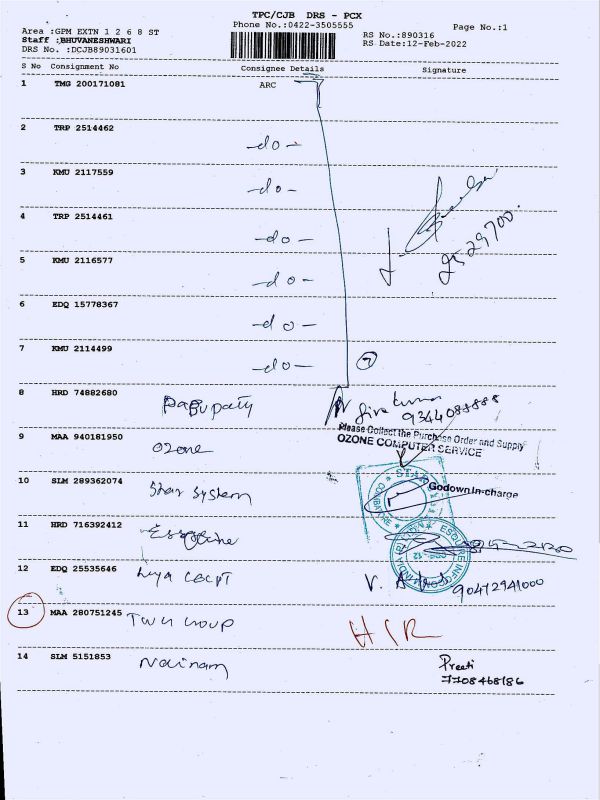 TPC/CJB DRS - PCX
Phone No.:0422-3505555
Page No.:1
Area :GPM EXTN 1 2 6 8 ST
Staff :BHUVANESHWARI
DRS No. :DCJB89031601
RS No.:890316
RS Date:12-Feb-2022
S No Consignment No Consignee Details Signature
1 TMG 200171081 ARC
2 TRP 2514462 -do-
3 KMU 2117559 -do-
4 TRP 2514461 -do-
5 KMU 2116577 -do-
6 EDQ 15778367 -do-
7 KMU 2114499 -do- 7
8 HRD 74882680 Pasupaty Siva Kumar
9344088888
Please Collect the Purchase Order and Supply
OZONE COMPUTER SERVICE
9 MAA 940181950 Ozone
10 SLM 289362074 Star System
Godown In-charge
11 HRD 716392412
12 EDQ 25535646
90472941000
13 MAA 280751245 Group
14 SLM 5151853 Nainam Preeti
7708468186